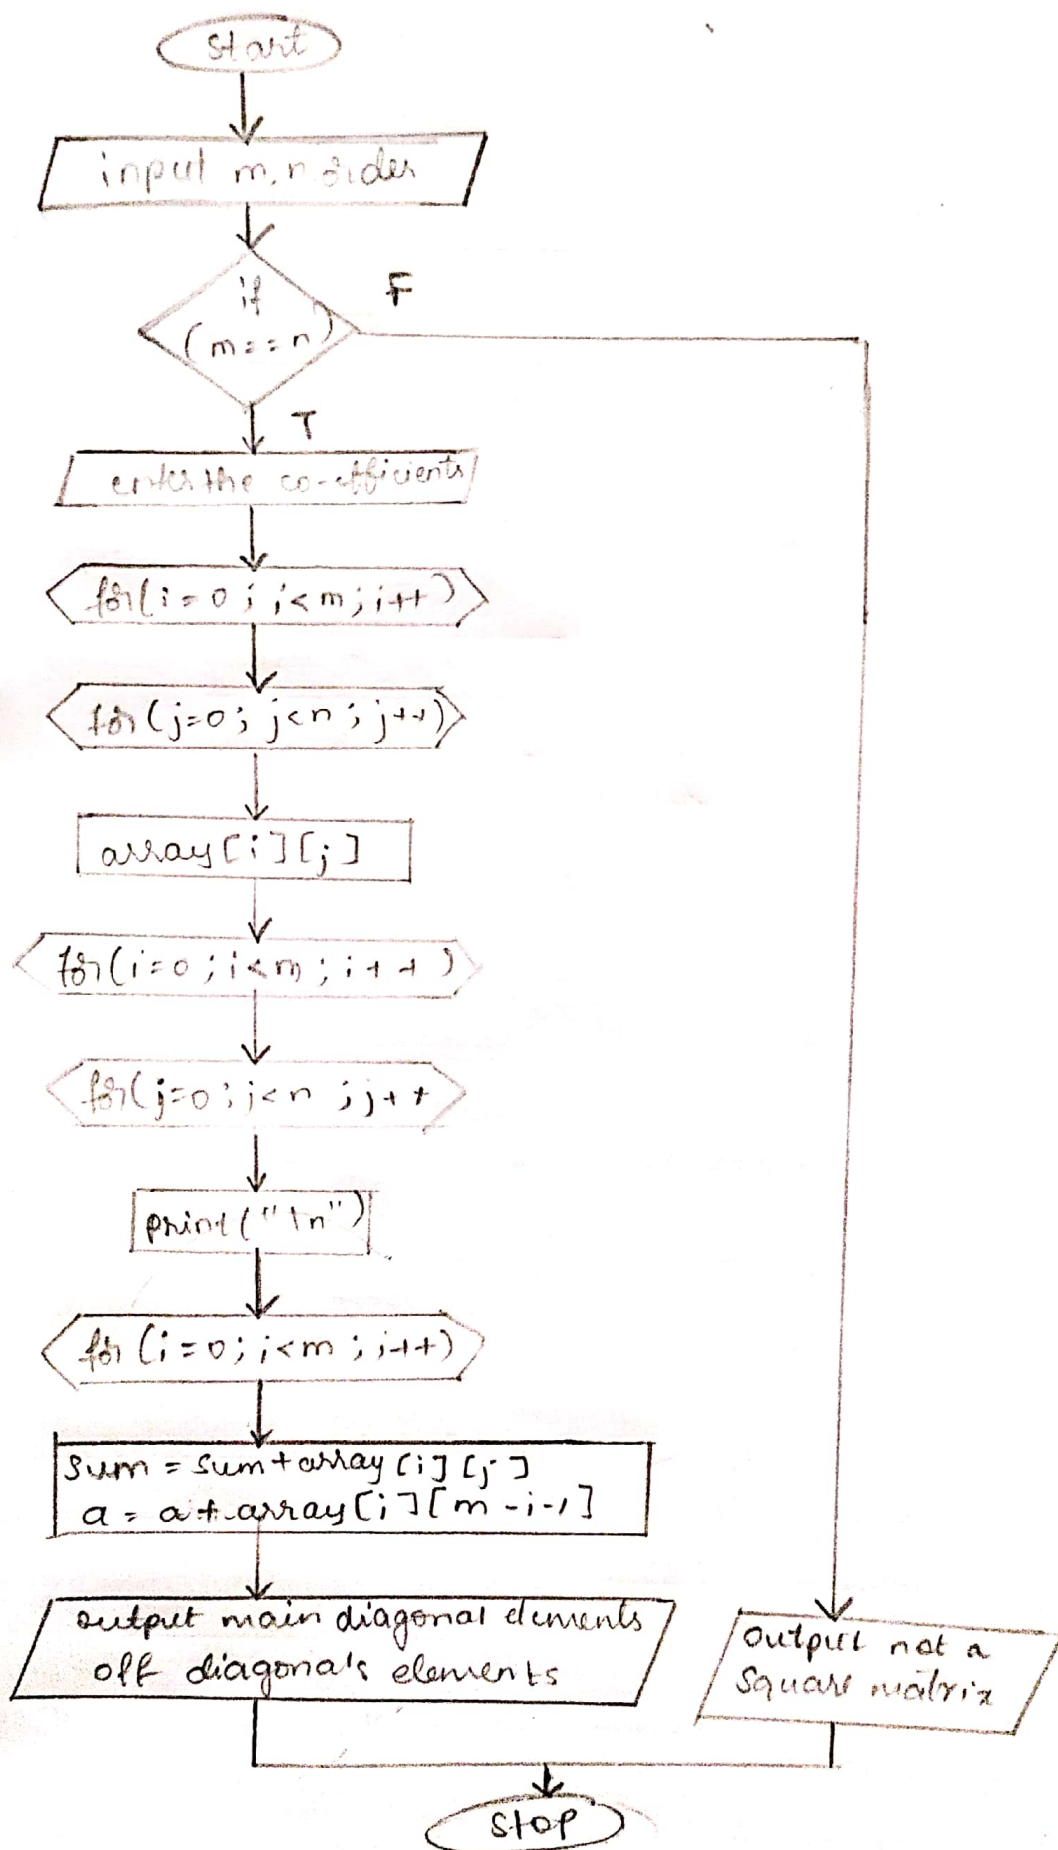 Start
input m,n order
if
(m==n)
F
T
enter the co-efficients
for(i=0; i<m; i++)
for(j=0; j<n; j++)
array[i][j]
for(i=0; i<m; i++)
for(j=0; j<n; j++
print("\n")
for(i=0; i<m; i++)
sum = sum+array[i][j]
a = a+array[i][m-i-1]
output main diagonal elements
off diagonal's elements
output not a
square matrix
stop